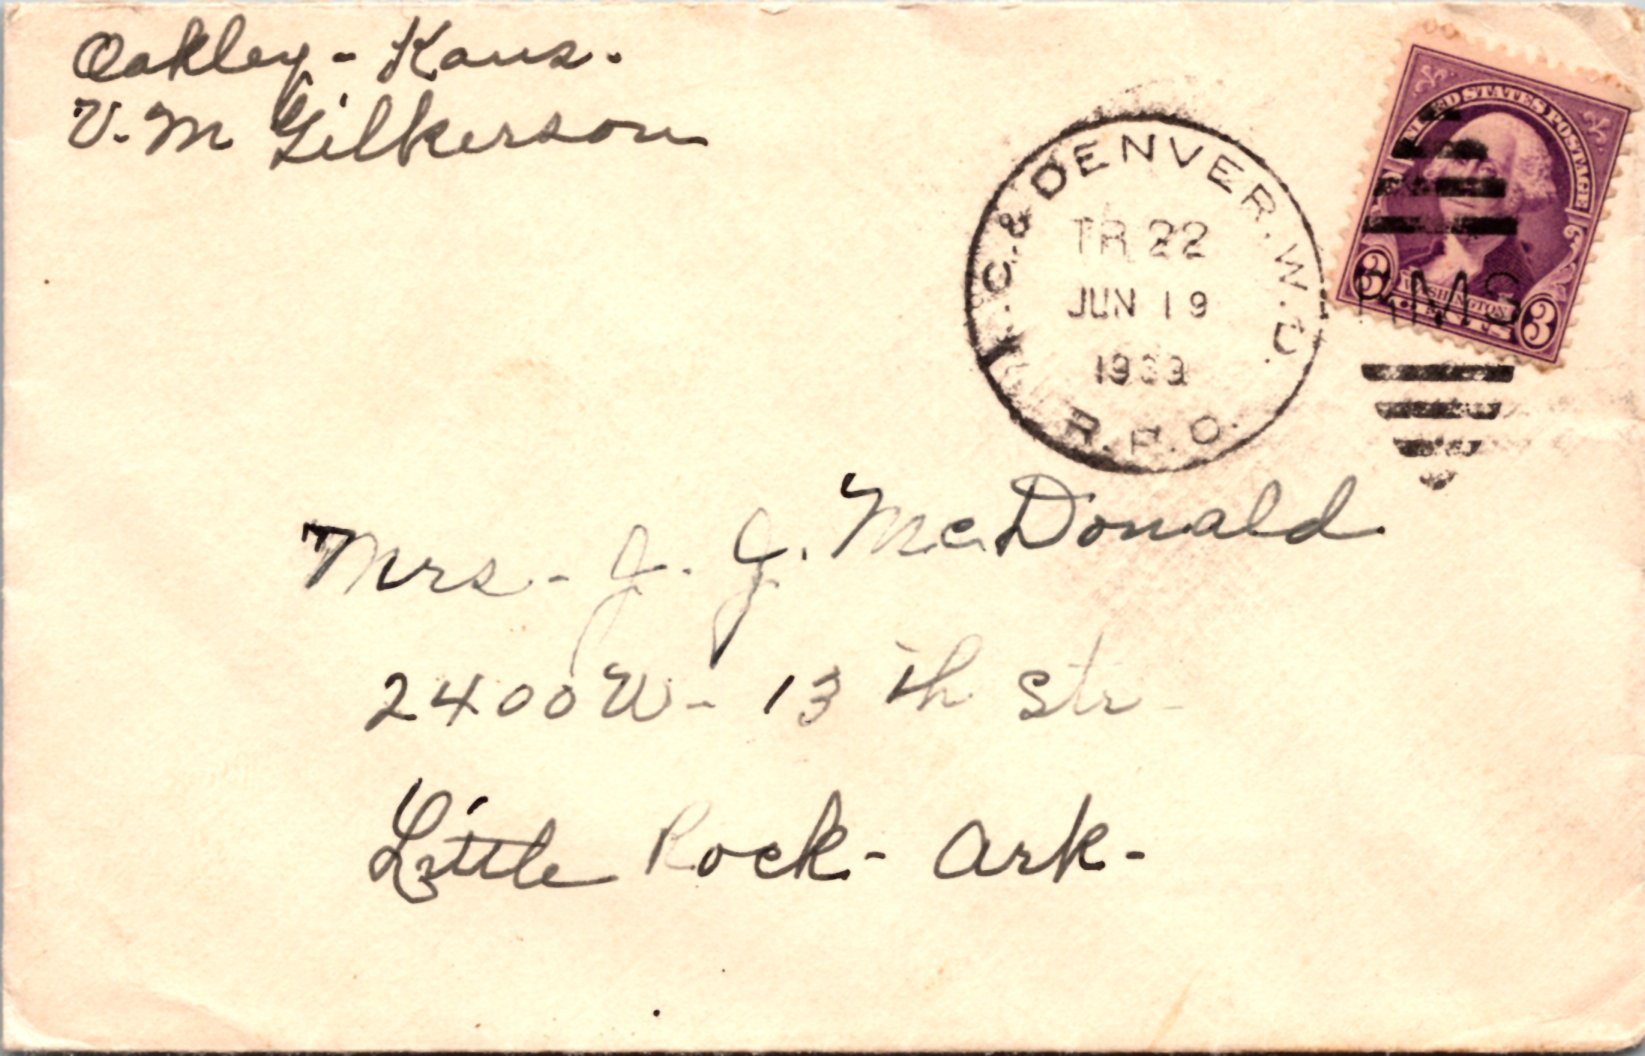 Oakley - Kans.
V. M Gilkerson
K.C. & DENVER. W.D.
TR 22
JUN 19
1933
R.P.O.
UNITED STATES POSTAGE
3 WASHINGTON 3
RMS
Mrs - J. J. McDonald
2400 W - 13 th Str -
Little Rock - Ark -